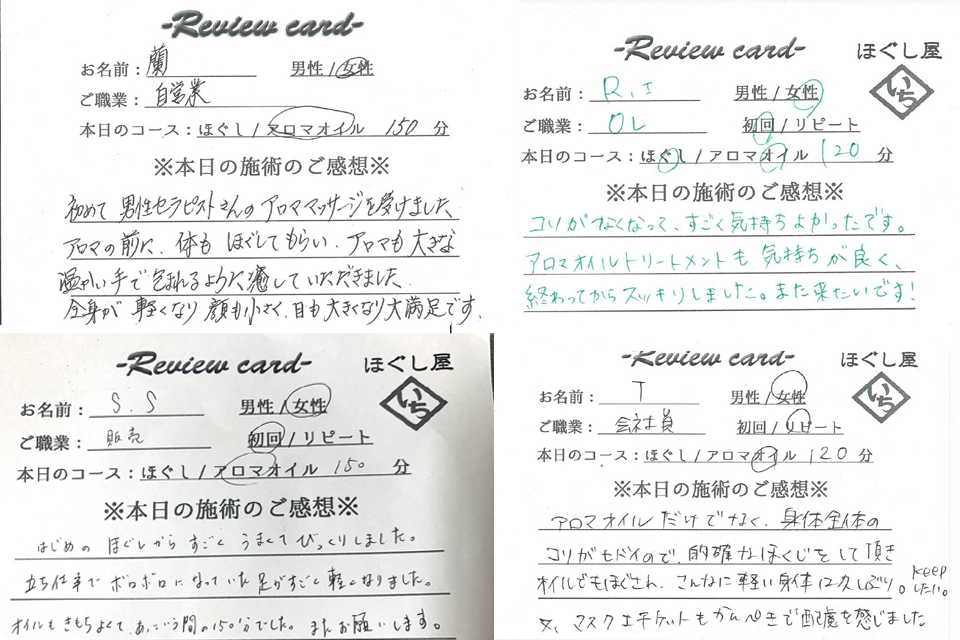 -Review card-
お名前：蘭 男性 / 女性
ご職業：自営業
本日のコース：ほぐし / アロマオイル 150 分
※本日の施術のご感想※
初めて 男性セラピストさんの アロママッサージを受けました
アロマの前に、体も ほぐしてもらい、アロマも 大きな
温かい手で 包まれるように癒していただきました
全身が 軽くなり 顔も小さく、目も大きくなり大満足です。
-Review card- ほぐし屋
いち
お名前：R.I 男性 / 女性
ご職業：OL 初回 / リピート
本日のコース：ほぐし / アロマオイル 120 分
※本日の施術のご感想※
コリがなくなって、すごく気持ちよかったです。
アロマオイルトリートメントも 気持ちが良く、
終わってからスッキリしました。また来たいです!
-Review card- ほぐし屋
いち
お名前：S.S 男性 / 女性
ご職業：販売 初回 / リピート
本日のコース：ほぐし / アロマオイル 150 分
※本日の施術のご感想※
はじめの ほぐしから すごく うまくて びっくりしました。
立ち仕事で ボロボロに なっていた 足がすごく 軽くなりました。
オイルも きもちよくて、あっという間の150分でした。またお願いします。
-Review card- ほぐし屋
いち
お名前：T 男性 / 女性
ご職業：会社員 初回 / リピート
本日のコース：ほぐし / アロマオイル 120 分
※本日の施術のご感想※
アロマオイル だけでなく、身体全体の
コリがヒドイので、的確なほぐしをして頂き
オイルでもほぐされ、こんなに軽い身体は久しぶり。keepしたい。
又、マスクエチケットもかんぺきで配慮を感じました